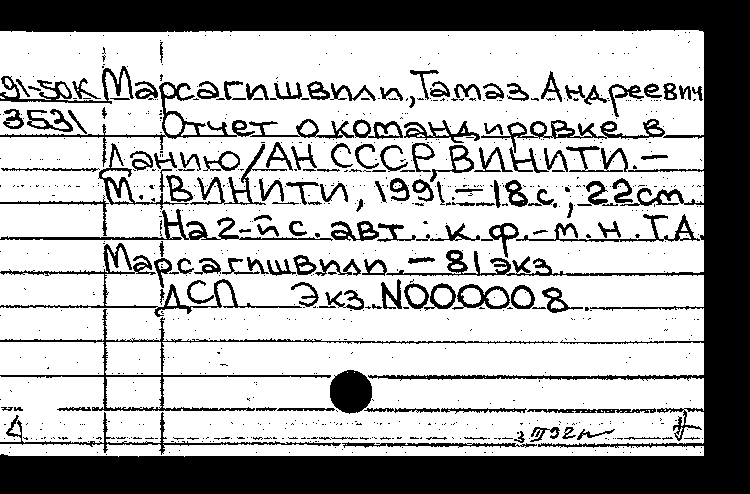 91-50К Марсагишвили, Тамаз Андреевич
3531 Отчет о командировке в
Данию / АН СССР, ВИНИТИ. —
М.: ВИНИТИ, 1991. — 18 с.; 22 см.
На 2-й с. авт.: к. ф.-м. н. Т.А.
Марсагишвили. — 81 экз.
ДСП. Экз. N000008.
3 III 92 г